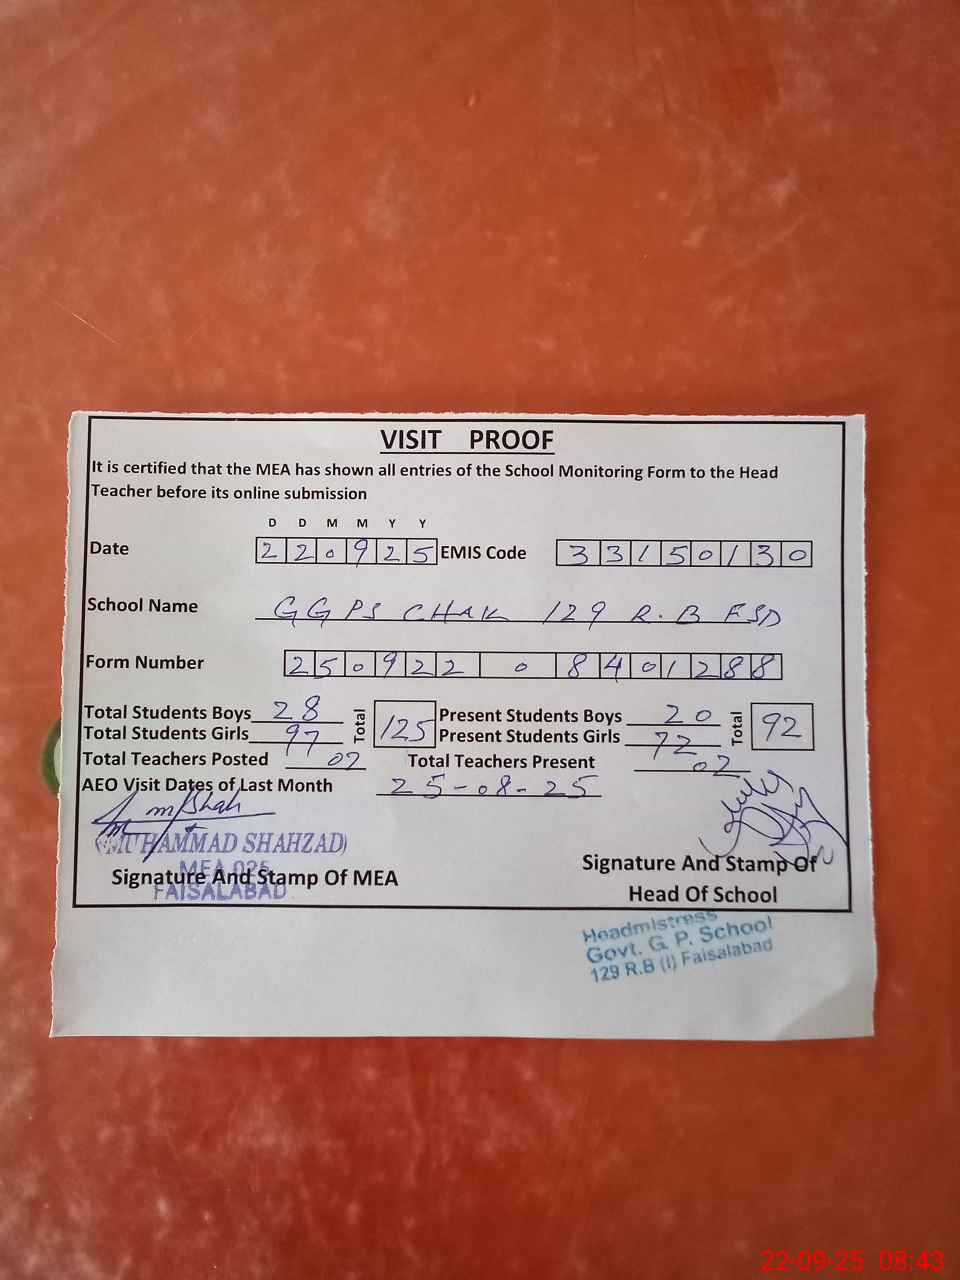 VISIT PROOF
It is certified that the MEA has shown all entries of the School Monitoring Form to the Head
Teacher before its online submission
D D M M Y Y
Date 220925 EMIS Code 33150130
School Name GGPS CHAK 129 R.B FSD
Form Number 250922 0 8401288
Total Students Boys 28 Total 125 Present Students Boys 20 Total 92
Total Students Girls 97 Present Students Girls 72
Total Teachers Posted 02 Total Teachers Present 02
AEO Visit Dates of Last Month 25-08-25
(MUHAMMAD SHAHZAD)
MEA 025
FAISALABAD
Signature And Stamp Of MEA
Signature And Stamp Of
Head Of School
Headmistress
Govt. G. P. School
129 R.B (I) Faisalabad
22-09-25 08:43